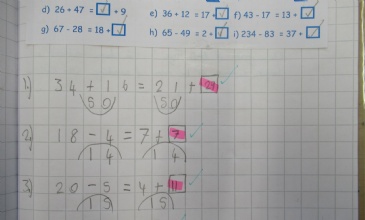 d) 26 + 47 = ☑ + 9 e) 36 + 12 = 17 + ☑ f) 43 - 17 = 13 + ☑
g) 67 - 28 = 18 + ☑ h) 65 - 49 = 2 + ☑ i) 234 - 83 = 37 + ☑
1) 34 + 16 = 21 + 29 ✓
50 50
2) 18 - 4 = 7 + 7 ✓
14 14
3) 20 - 5 = 4 + 11 ✓
15 15